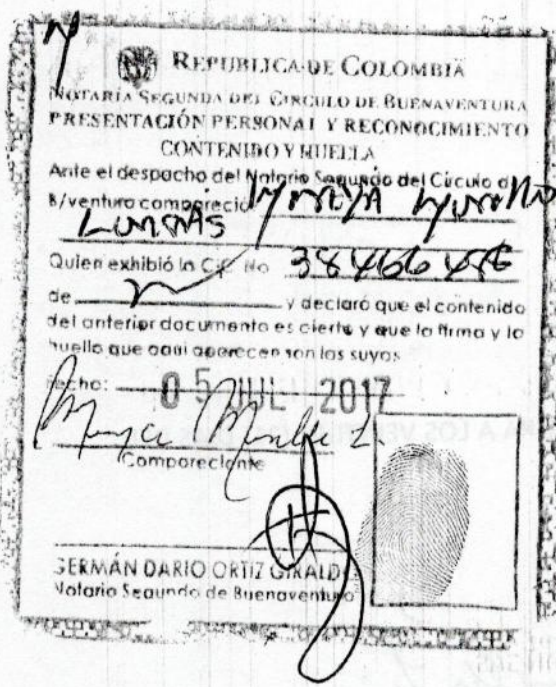 REPUBLICA DE COLOMBIA
NOTARÍA SEGUNDA DEL CIRCULO DE BUENAVENTURA
PRESENTACIÓN PERSONAL Y RECONOCIMIENTO
CONTENIDO Y HUELLA
Ante el despacho del Notario Segundo del Circulo d
B/ventura compareció
Quien exhibió la C.C. No 38466
de y declaró que el contenido
del anterior documento es cierto y que la firma y la
huella que aqui aparecen son las suyas
Fecha: 05 JUL 2017
Compareciente
GERMÁN DARIO ORTIZ GIRALDO
Notario Segundo de Buenaventura
A LOS